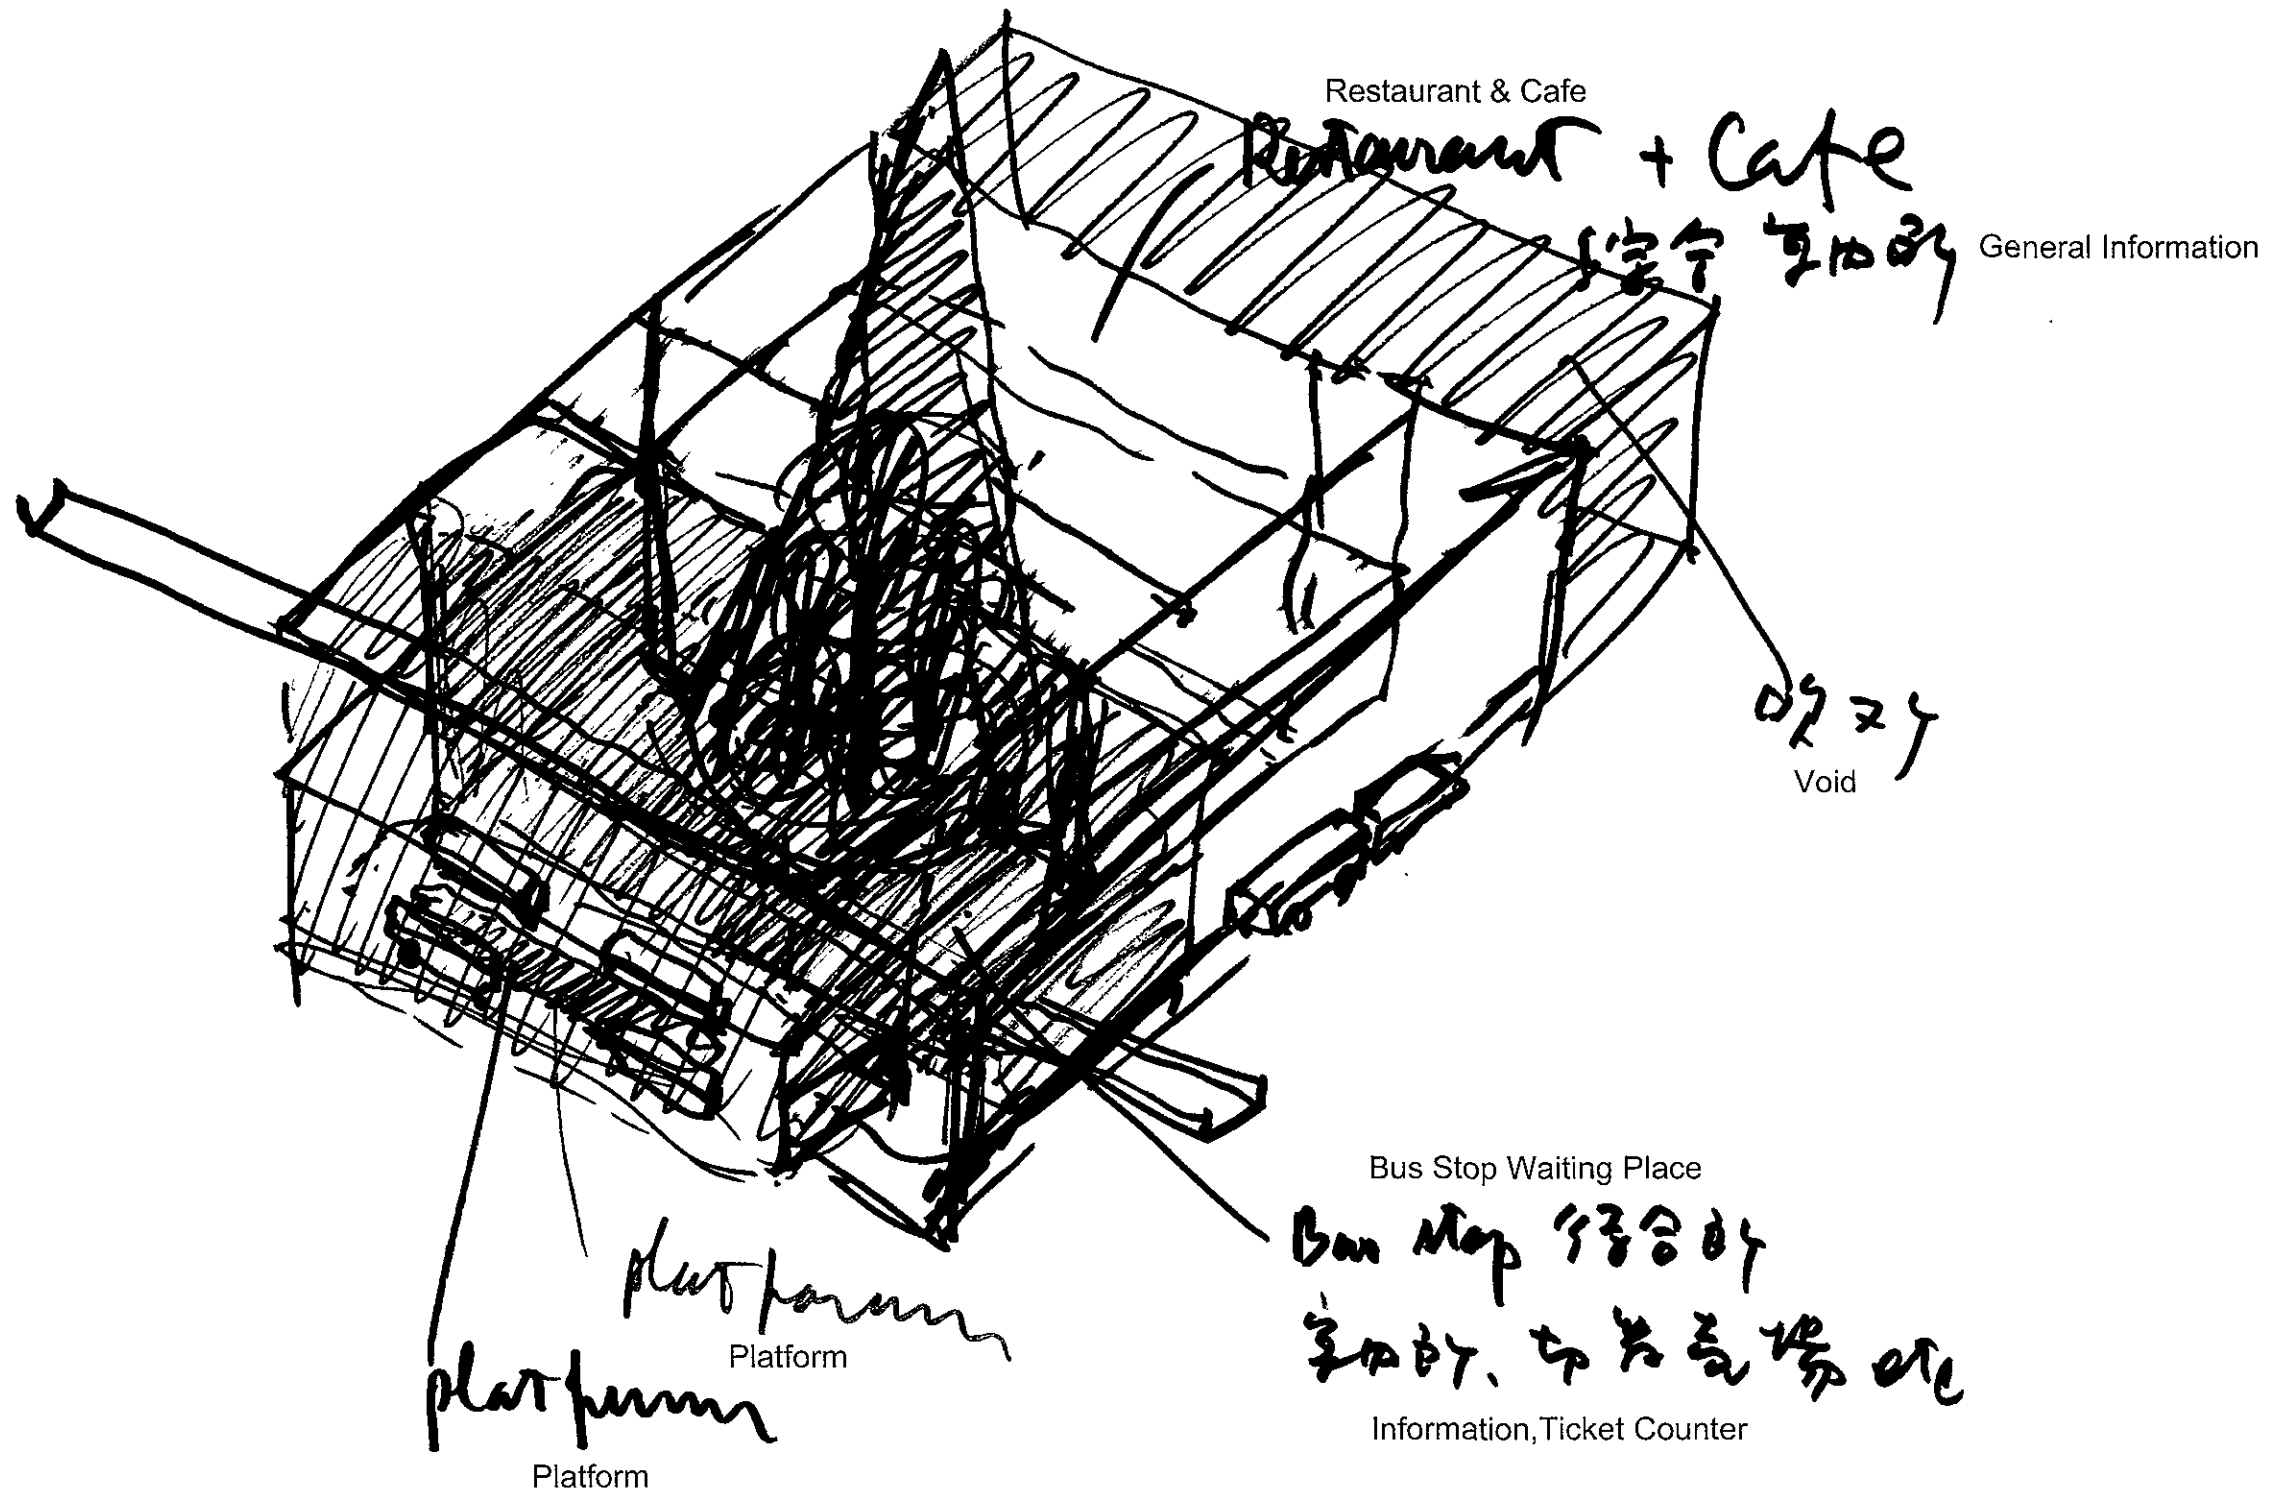 Restaurant & Cafe
Restaurant + Cafe
General Information
吹ヌケ
Void
Bus Stop Waiting Place
Bus Stop 待合所
案内所、切符売場 etc
Information,Ticket Counter
platform
Platform
platform
Platform